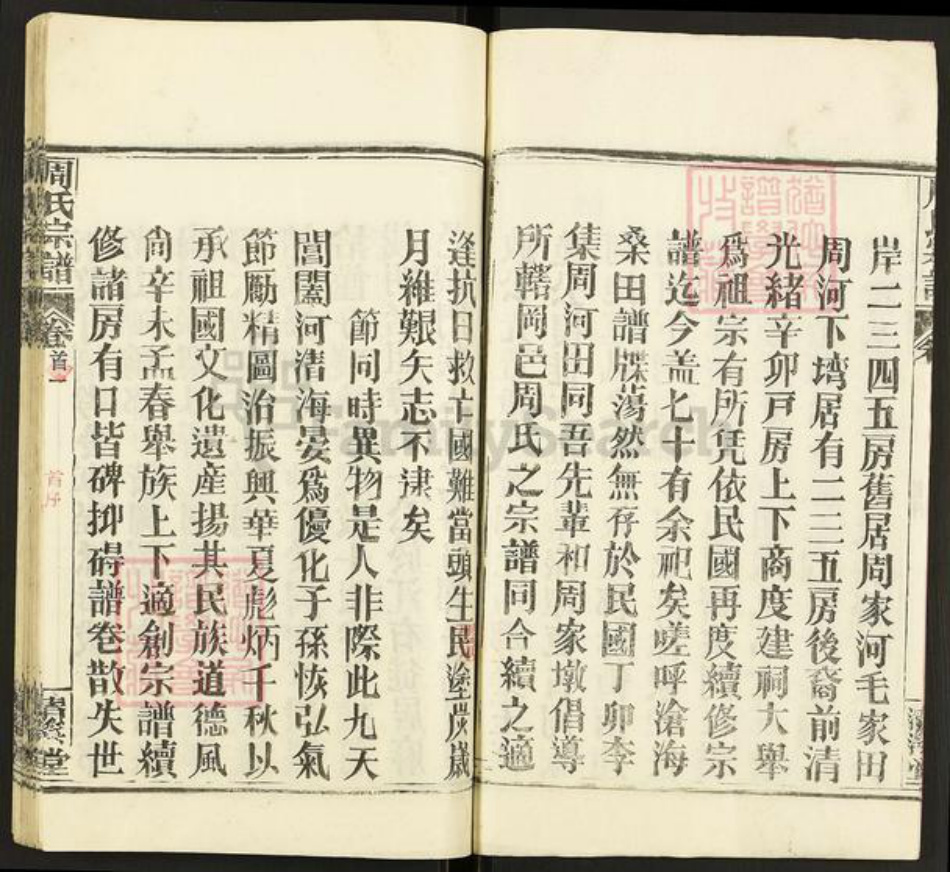 岸二三四五房舊居周家河毛家田
周河下塆居有二三五房後裔前清
光緒辛卯戸房上下商度建祠大舉
爲祖宗有所凭依民國再度續修宗
譜迄今盖七十有余祀矣嗟呼滄海
桑田譜牒蕩然無存於民國丁卯季
集周河田同吾先輩和周家墩倡導
所轄岡邑周氏之宗譜同合續之適
逢抗日救亡國難當頭生民塗炭歲
月維艱矢志不逮矣
節同時異物是人非際此九天
閶闔河清海晏爲優化子孫恢弘氣
節勵精圖治振興華夏彪炳千秋以
承祖國文化遺産揚其民族道德風
尚辛未孟春舉族上下適創宗譜續
修諸房有口皆碑抑碍譜卷散失世
周氏宗譜
卷首
一
首序
堂
FamilySearch